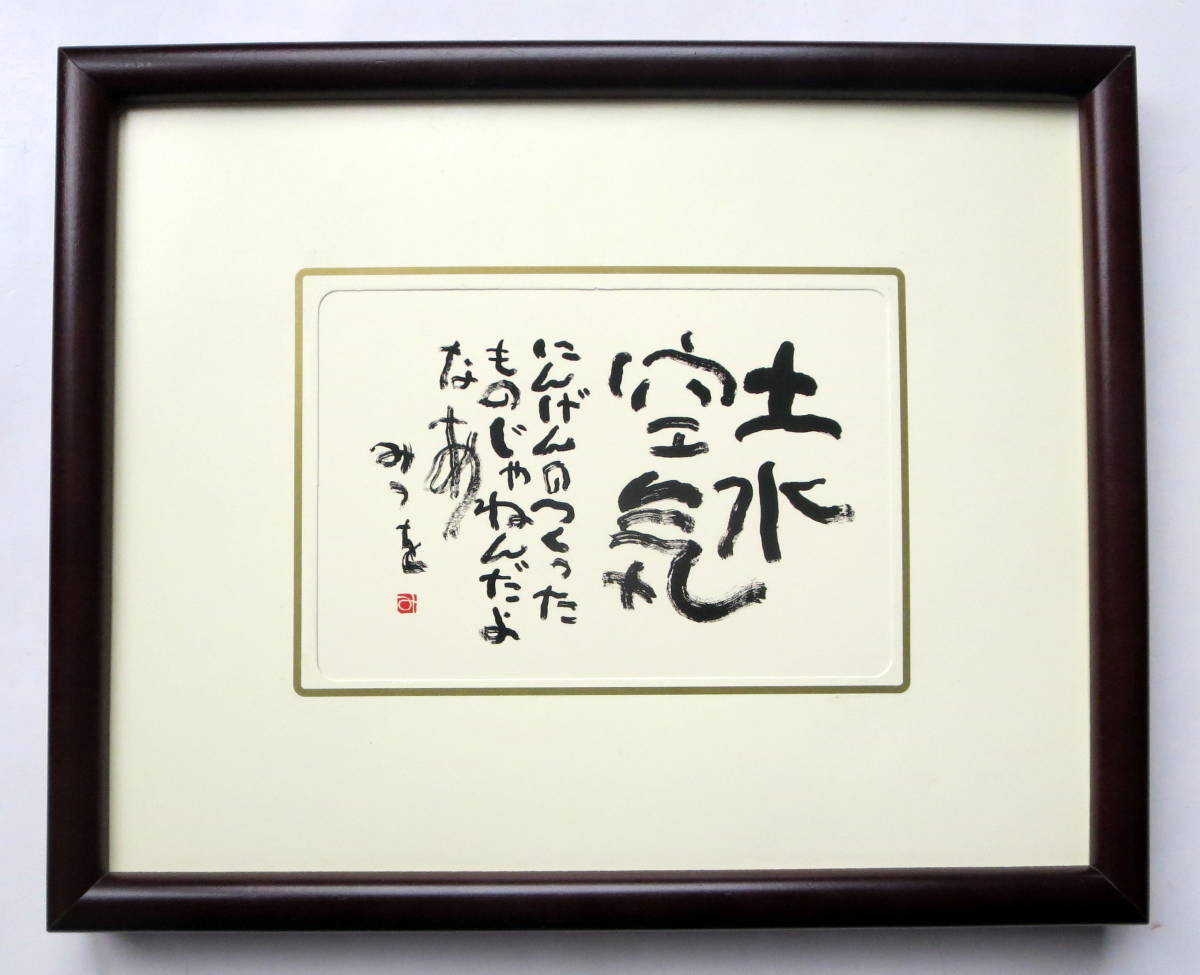 土水
空気
にんげんのつくった
ものじゃねんだよ
なあ
みつを
み